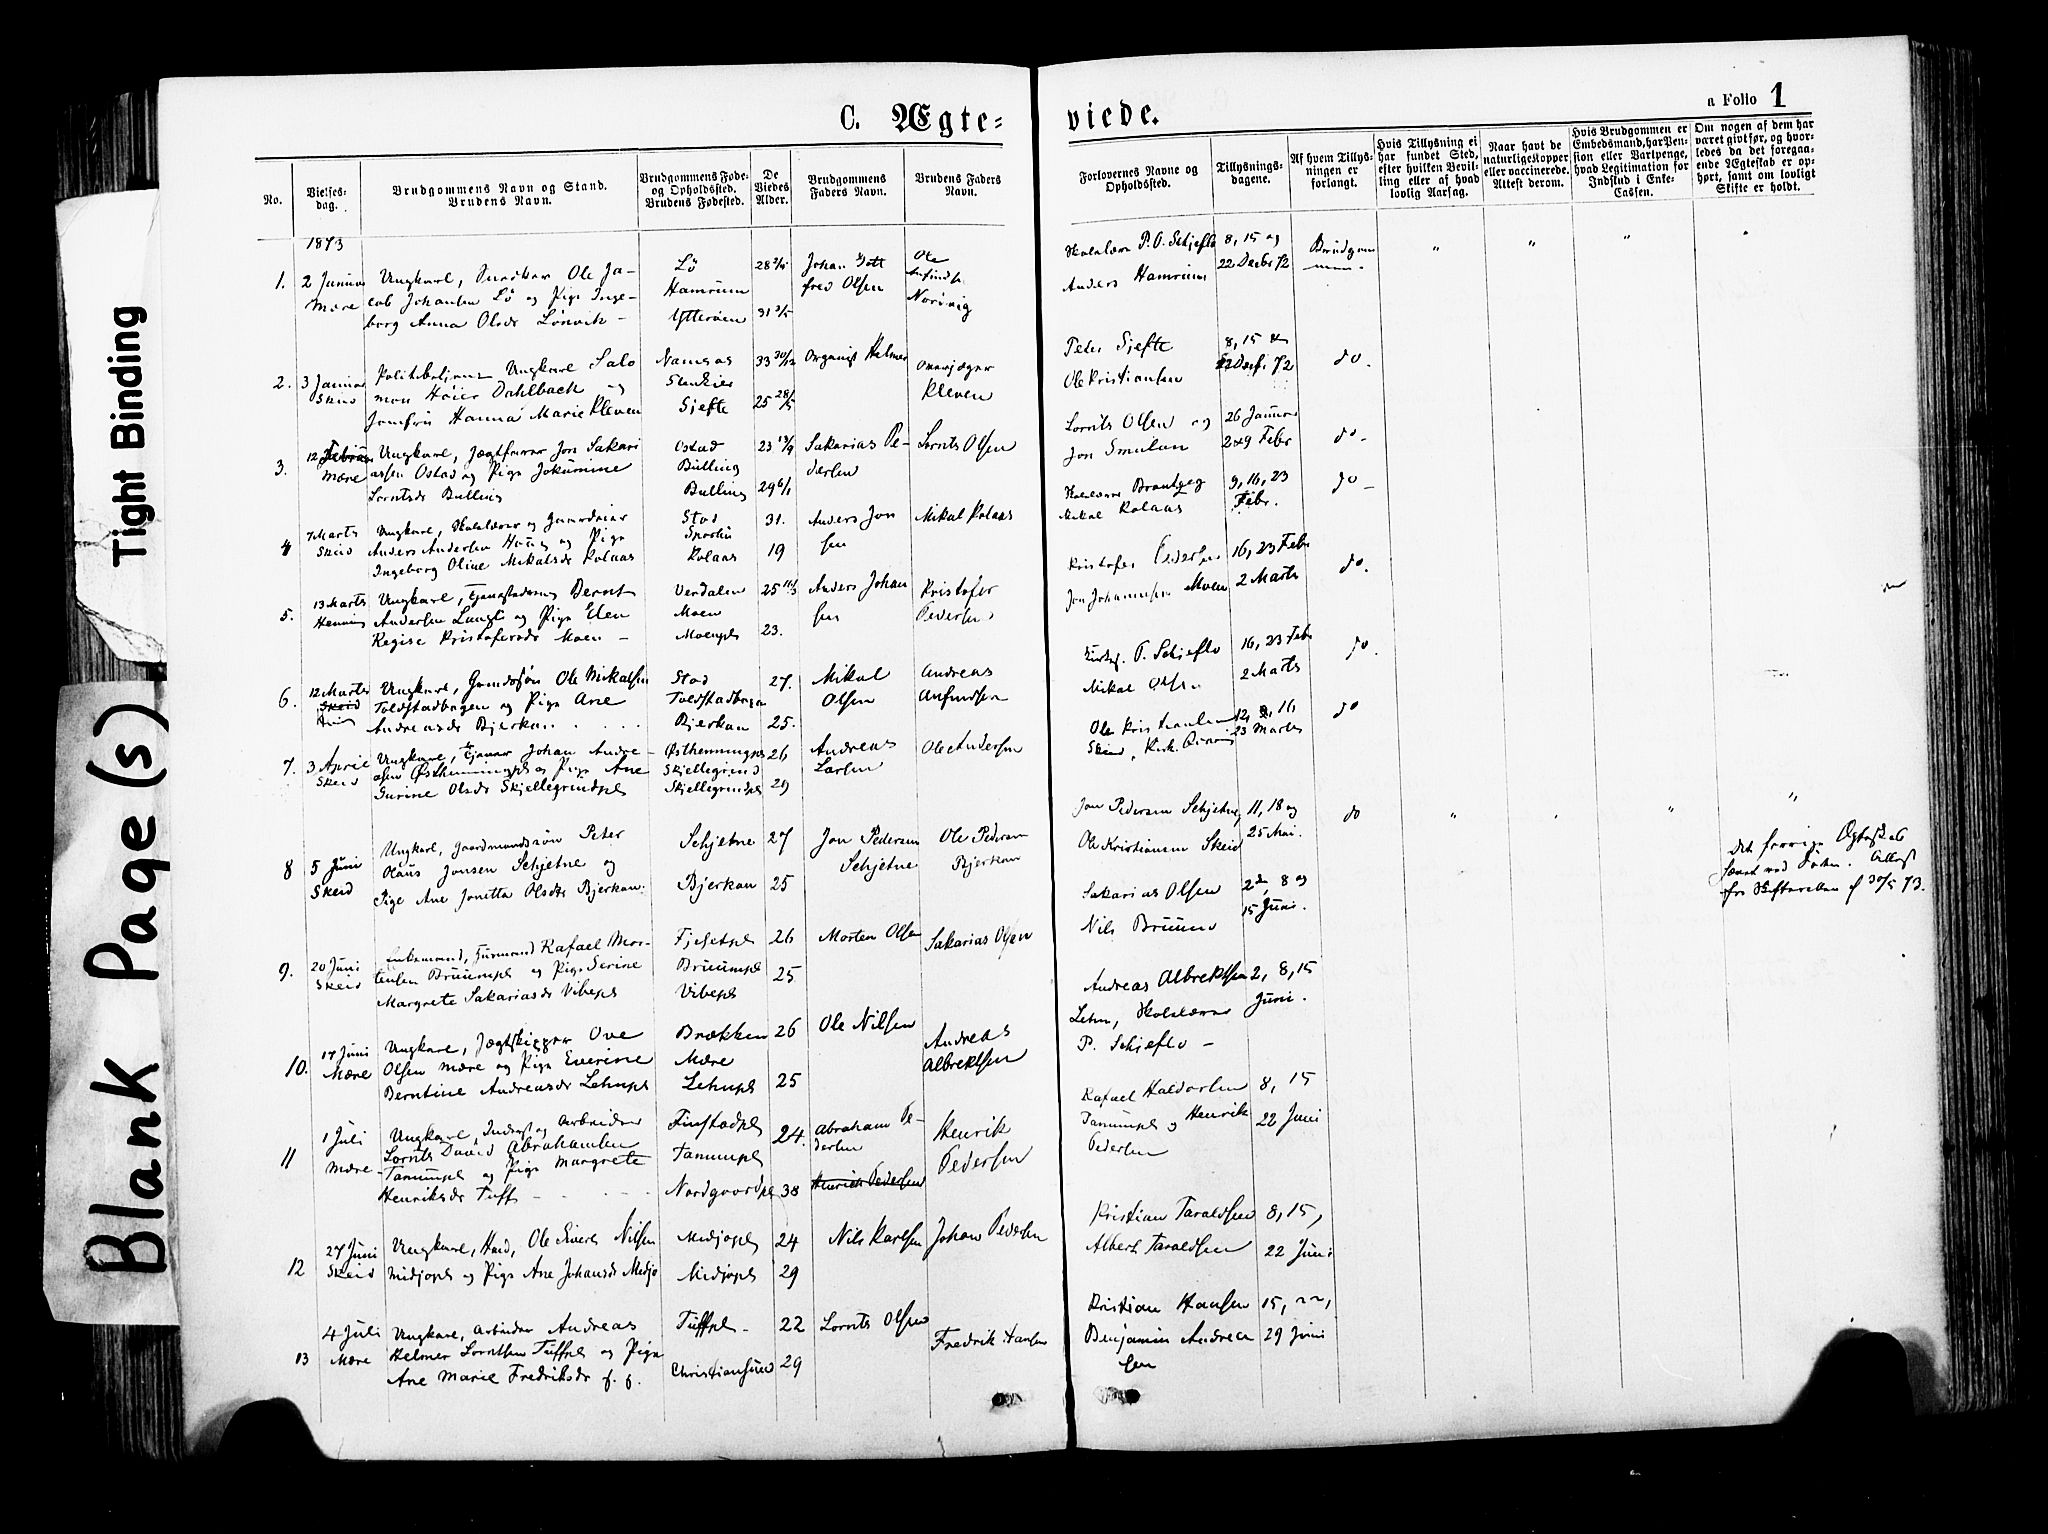 Tight Binding
Blank Page(s)
C. Ægte=
viede.
a Folio 1
No.
Vielses-
dag.
Brudgommens Navn og Stand.
Brudens Navn.
Brudgommens Føde-
og Opholdssted.
Brudens Fødested.
De
Viedes
Alder.
Brudgommens
Faders Navn.
Brudens Faders
Navn.
Forlovernes Navne og
Opholdssted.
Tillysnings-
dagene.
Af hvem Tillys-
ningen er
forlangt.
Hvis Tillysning ei
har fundet Sted,
efter hvilken Bevil-
ling eller af hvad
lovlig Aarsag.
Naar havt de
naturlige Kopper
eller vaccinerede.
Attest derom.
Hvis Brudgommen er
Embedsmand, har Pen-
sion eller Vartpenge,
hvad Legitimation for
Indskud i Enke-
Cassen.
Om nogen af dem har
været givt før, og hvor-
ledes da det foregaa-
ende Ægteskab er op-
hørt, samt om lovligt
Skifte er holdt.
1873
1. 2 Januar
Mære
Ungkarl, Ole Ja-
cob Johansen Lø og Pige Inge-
borg Anna Olsdr Lønvik -
Lø
Hamrum
Ytterøen
28
31
Johan Gott
fred Olsen
Ole
Skolelærer P. O. Schjeflo
Anders Hamrum
8, 15 og
22 Decbr 72
Brudgom
men.
2. 3 Januar
Skeid
Politibetjent Ungkarl Salo
mon Høier Dahlback og
Jomfru Hanna Marie Kleven
Namsos
Stenkier
Sjefte
33 30/12
25 28/5
Organist Helmer
Kleven
Peter Sjefte
Ole Kristiansen
8, 15 &
22 Decbr. 72
do.
3. 12 Februar
Mære
Ungkarl, Jægtfører Jon Sakari
assen Ostad og Pige Jokumine
Lorntsdr Bulling
Ostad
Bulling
Bulling
23 13/9
29 6/1
Sakarias Pe-
dersen
Lornts Olsen
Lornts Olsen og
Jon Smulan
26 Januar
2 & 9 Febr
do-
4 7 Marts
Skeid
Ungkarl, Skolelærer og
Anders Andersen og Pige
Ingeborg Oline Mikalsdr Rolaas
Stod
Rolaas
31.
19
Anders Jon
sen
Mikal Rolaas
Skolelærer
Mikal Rolaas
9, 16, 23
Febr.
do-
5. 13 Marts
Henning
Ungkarl, Bernt
Andersen og Pige Elen
Regise Kristofersdr Moen -
Verdalen
Moen
Moenpl
25
23.
Anders Johan
sen
Kristofer
Pedersen
Kristofer Pedersen
Jon Johannesen Moen
16, 23 Febr
2 Marts
do.
6. 12 Marts
Skeid
Ungkarl, Gaardssøn Ole Mikalsen
Toldstadhagen og Pige Ane
Andreasdr Bjerkan
Stod
Toldstadhagen
Bjerkan
27.
25.
Mikal
Olsen
Andreas
Anfindsen
P. Schjeflo
Mikal Olsen
16, 23 Feb
2 Marts
do.
7. 3 April
Skeid
Ungkarl, tjener Johan Andre-
asen Østhenningpl og Pige Ane
Gurine Olsdr Skjellegrindpl
Østhenningpl
Skjellegrind
Skjellegrindpl
26
29
Andreas
Larsen
Ole Andersen
Ole Kristiansen
Skeid, Kirk.
12, 16,
23 Marts
do
8 5 Juni
Skeid
Ungkarl, Gaardmandssøn Peter
Olaus Jonsen Schjetne og
Pige Ane Jonetta Olsdtr Bjerkan.
Schjetne
Bjerkan
27
25
Jon Pedersen
Schjetne
Ole Pedersen
Bjerkan
Jon Pedersen Schjetne
Ole Kristiansen Skeid
11, 18 og
25 Mai.
do
9. 20 Juni
Skeid
Enkemand, Rafael Mor-
tensen Bruumpl og Pige Serine
Margrete Sakariasdr Vibepl
Fjesetpl
Bruumpl
Vibepl
26
25
Morten Olsen
Sakarias Olsen
Sakarias Olsen
Nils Bruum
2den, 8 og
15 Juni.
Det forrige Ægteskab
hævet ved Døden. Attest
fra Skifteretten af 30/5 73.
10. 17 Juni
Mære
Ungkarl, Jægtskipper Ove
Olsen Mære og Pige Everine
Berntine Andreasdr Lehnpl
Brækken
Mære
Lehnpl
26
25
Ole Nilsen
Andreas
Albrektsen
Andreas Albrektsen
Lehn, Skolelærer
P. Schjeflo -
2, 8, 15
Juni.
11 1 Juli
Mære-
Ungkarl, Inderst og Arbeider
Lornts David Abrahamsen
Tanumpl og Pige Margrete
Henriksdr Tuff - -
Finstadpl
Tanumpl
Nordgaardpl
24.
38
Abraham Pe-
dersen
Henrick Pedersen
Henrik
Pedersen
Rafael Haldorsen
Tanumpl og Henrik
Pedersen
8, 15
22 Juni
12 27 Juni
Skeid
Ungkarl, Ole Nilsen
Midjopl og Pige Ane Johansdr Midjo
Midjopl
Midjopl
24
29
Nils Karlsen
Johan Pedersen
Kristian Taraldsen
Albert Taraldsen
8, 15,
22 Juni
13 4 Juli
Mære
Ungkarl, Arbeider Andreas
Helmer Lorntsen Tuffpl og Pige
Ane Marie Fredriksdr
Tuffpl-
Christiansund
22
29
Lornts Olsen
Fredrik Hansen
Kristian Hansen
Benjamin Andrea
sen
15, 22,
29 Juni